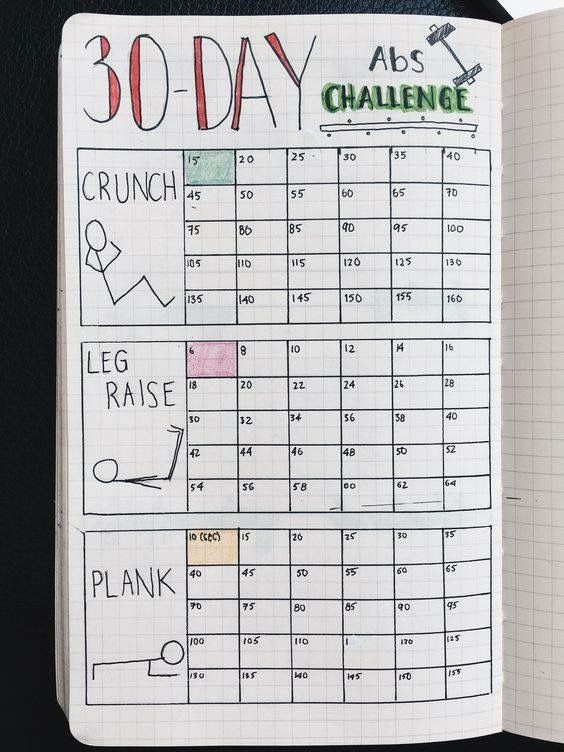 30-DAY
Abs
CHALLENGE
CRUNCH
15 20 25 30 35 40
45 50 55 60 65 70
75 80 85 90 95 100
105 110 115 120 125 130
135 140 145 150 155 160
LEG
RAISE
6 8 10 12 14 16
18 20 22 24 26 28
30 32 34 36 38 40
42 44 46 48 50 52
54 56 58 60 62 64
PLANK
10 (SEC) 15 20 25 30 35
40 45 50 55 60 65
70 75 80 85 90 95
100 105 110 1 120 125
130 135 140 145 150 155